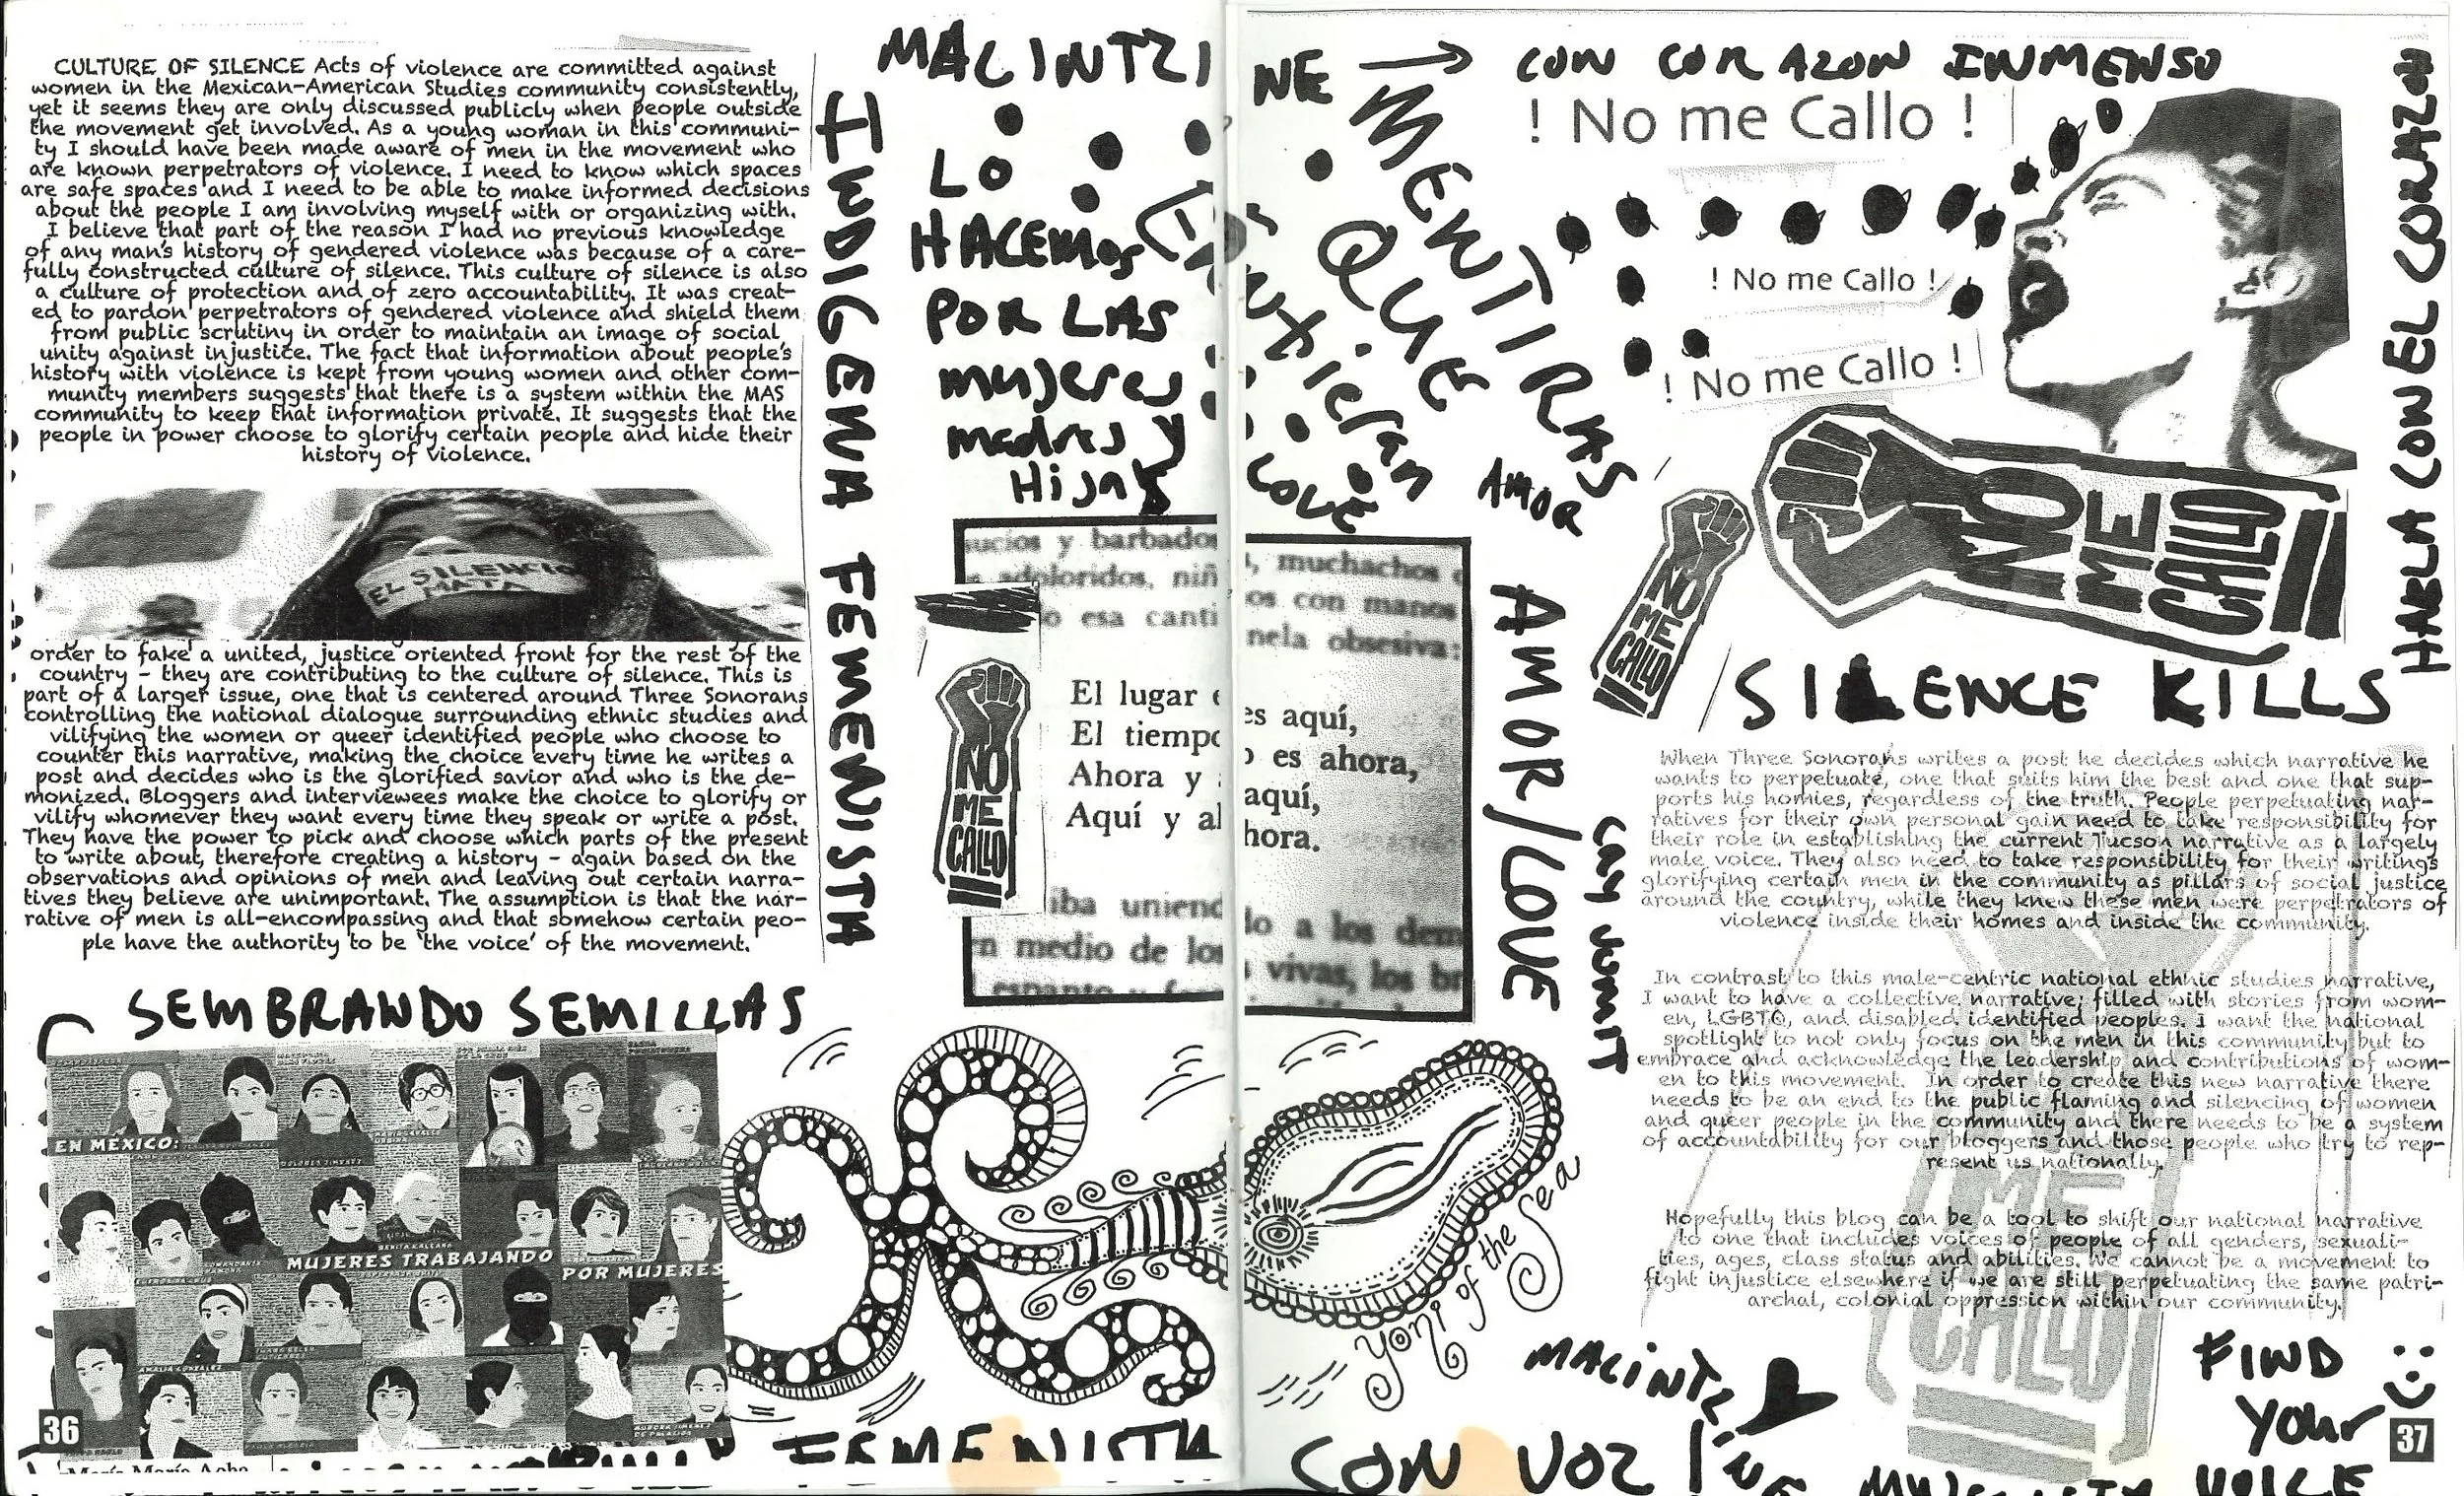 CULTURE OF SILENCE Acts of violence are committed against
women in the Mexican-American Studies community consistently,
yet it seems they are only discussed publicly when people outside
the movement get involved. As a young woman in this communi-
ty I should have been made aware of men in the movement who
are known perpetrators of violence. I need to know which spaces
are safe spaces and I need to be able to make informed decisions
about the people I am involving myself with or organizing with.
I believe that part of the reason I had no previous knowledge
of any man's history of gendered violence was because of a care-
fully constructed culture of silence. This culture of silence is also
a culture of protection and of zero accountability. It was creat-
ed to pardon perpetrators of gendered violence and shield them
from public scrutiny in order to maintain an image of social
unity against injustice. The fact that information about people's
history with violence is kept from young women and other com-
munity members suggests that there is a system within the MAS
community to keep that information private. It suggests that the
people in power choose to glorify certain people and hide their
history of violence.
EL SILENCIO
MATA
order to fake a united, justice oriented front for the rest of the
country - they are contributing to the culture of silence. This is
part of a larger issue, one that is centered around Three Sonorans
controlling the national dialogue surrounding ethnic studies and
vilifying the women or queer identified people who choose to
counter this narrative, making the choice every time he writes a
post and decides who is the glorified savior and who is the de-
monized. Bloggers and interviewees make the choice to glorify or
vilify whomever they want every time they speak or write a post.
They have the power to pick and choose which parts of the present
to write about, therefore creating a history - again based on the
observations and opinions of men and leaving out certain narra-
tives they believe are unimportant. The assumption is that the nar-
rative of men is all-encompassing and that somehow certain peo-
ple have the authority to be 'the voice' of the movement.
SEMBRANDO SEMILLAS
EN MÉXICO:
MUJERES TRABAJANDO
POR MUJERES
36
INDIGENA FEMENISTA
MALINTZI NE → CON CORAZON INMENSO
LO
HACEMOS
POR LAS
mujeres
madres y
Hijas
LOVE
QUE
MENTIRAS
AMOR
sucios y barbados, muchachos
adoloridos, niñ os con manos
o esa canti nela obsesiva:
El lugar es aquí,
El tiempo es ahora,
Ahora y aquí,
Aquí y ahora.
iba uniendo a los dem
en medio de los vivas, los br
NO
ME
CALLO
AMOR/LOVE
yoni of the Sea
! No me Callo !
! No me Callo !
! No me Callo !
HABLA CON EL CORAZON
NO
ME
CALLO
NO
ME
CALLO
SILENCE KILLS
When Three Sonorans writes a post he decides which narrative he
wants to perpetuate, one that suits him the best and one that sup-
ports his homies, regardless of the truth. People perpetuating nar-
ratives for their own personal gain need to take responsibility for
their role in establishing the current Tucson narrative as a largely
male voice. They also need to take responsibility for their writings
glorifying certain men in the community as pillars of social justice
around the country, while they knew these men were perpetrators of
violence inside their homes and inside the community.
In contrast to this male-centric national ethnic studies narrative,
I want to have a collective narrative; filled with stories from wom-
en, LGBTQ, and disabled identified peoples. I want the national
spotlight to not only focus on the men in this community but to
embrace and acknowledge the leadership and contributions of wom-
en to this movement. In order to create this new narrative there
needs to be an end to the public flaming and silencing of women
and queer people in the community and there needs to be a system
of accountability for our bloggers and those people who try to rep-
resent us nationally.
Hopefully this blog can be a tool to shift our national narrative
to one that includes voices of people of all genders, sexuali-
ties, ages, class status and abilities. We cannot be a movement to
fight injustice elsewhere if we are still perpetuating the same patri-
archal, colonial oppression within our community.
ME
CALLO
MALINTZINE
CON VOZ
FIND
your
VOICE
37